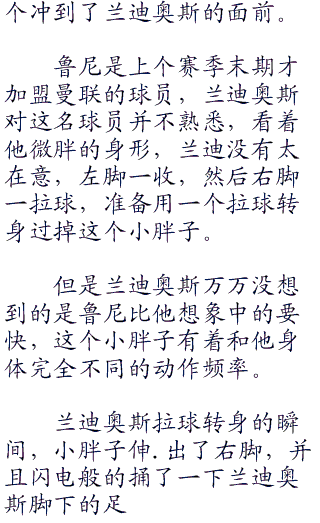 个冲到了兰迪奥斯的面前。
鲁尼是上个赛季末期才
加盟曼联的球员，兰迪奥斯
对这名球员并不熟悉，看着
他微胖的身形，兰迪没有太
在意，左脚一收，然后右脚
一拉球，准备用一个拉球转
身过掉这个小胖子。
但是兰迪奥斯万万没想
到的是鲁尼比他想象中的要
快，这个小胖子有着和他身
体完全不同的动作频率。
兰迪奥斯拉球转身的瞬
间，小胖子伸.出了右脚，并
且闪电般的捅了一下兰迪奥
斯脚下的足